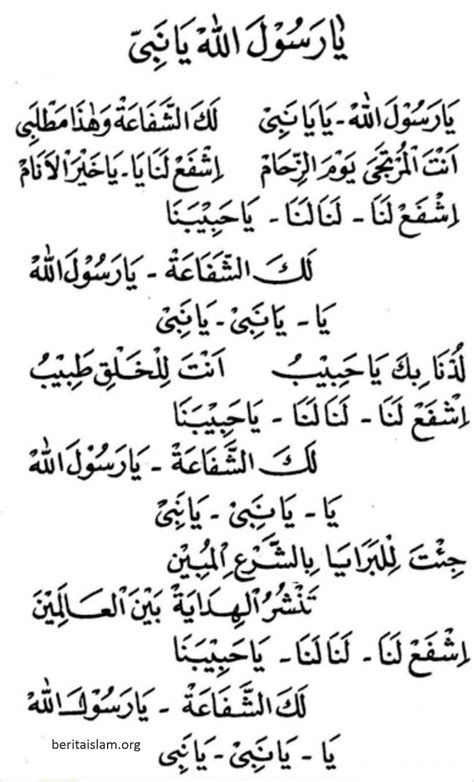 يَا رَسُوْلَ اللهْ يَا نَبِىّ
يَارَسُوْلَ اللهْ - يَا يَا نَبِىْ لَكَ الشَّفَاعَةْ وَهٰذَا مَطْلَبِى
اَنْتَ الْمُرْتَجَى يَوْمَ الزِّحَامْ اِشْفَعْ لَنَا يَا - يَاخَيْرَ الْاَنَامْ
اِشْفَعْ لَنَا - لَنَا لَنَا - يَاحَبِيْبَنَا
لَكَ الشَّفَاعَةْ - يَارَسُوْلَ اللهْ
يَا - يَانَبِىْ - يَانَبِىْ
لُذْنَا بِكَ يَا حَبِيْبُ اَنْتَ لِلْخَلْقِ طَبِيْبُ
اِشْفَعْ لَنَا - لَنَا لَنَا - يَاحَبِيْبَنَا
لَكَ الشَّفَاعَةْ - يَارَسُوْلَ اللهْ
يَا - يَانَبِىْ - يَانَبِىْ
جِئْتَ لِلْبَرَايَا بِالشَّرْعِ الْمُبِيْن
تَنْشُرُ الْهِدَايَةْ بَيْنَ الْعَالَمِيْنَ
اِشْفَعْ لَنَا - لَنَا لَنَا - يَاحَبِيْبَنَا
لَكَ الشَّفَاعَةْ - يَارَسُوْلَ اللهْ
يَا - يَانَبِىْ - يَانَبِى
beritaislam.org